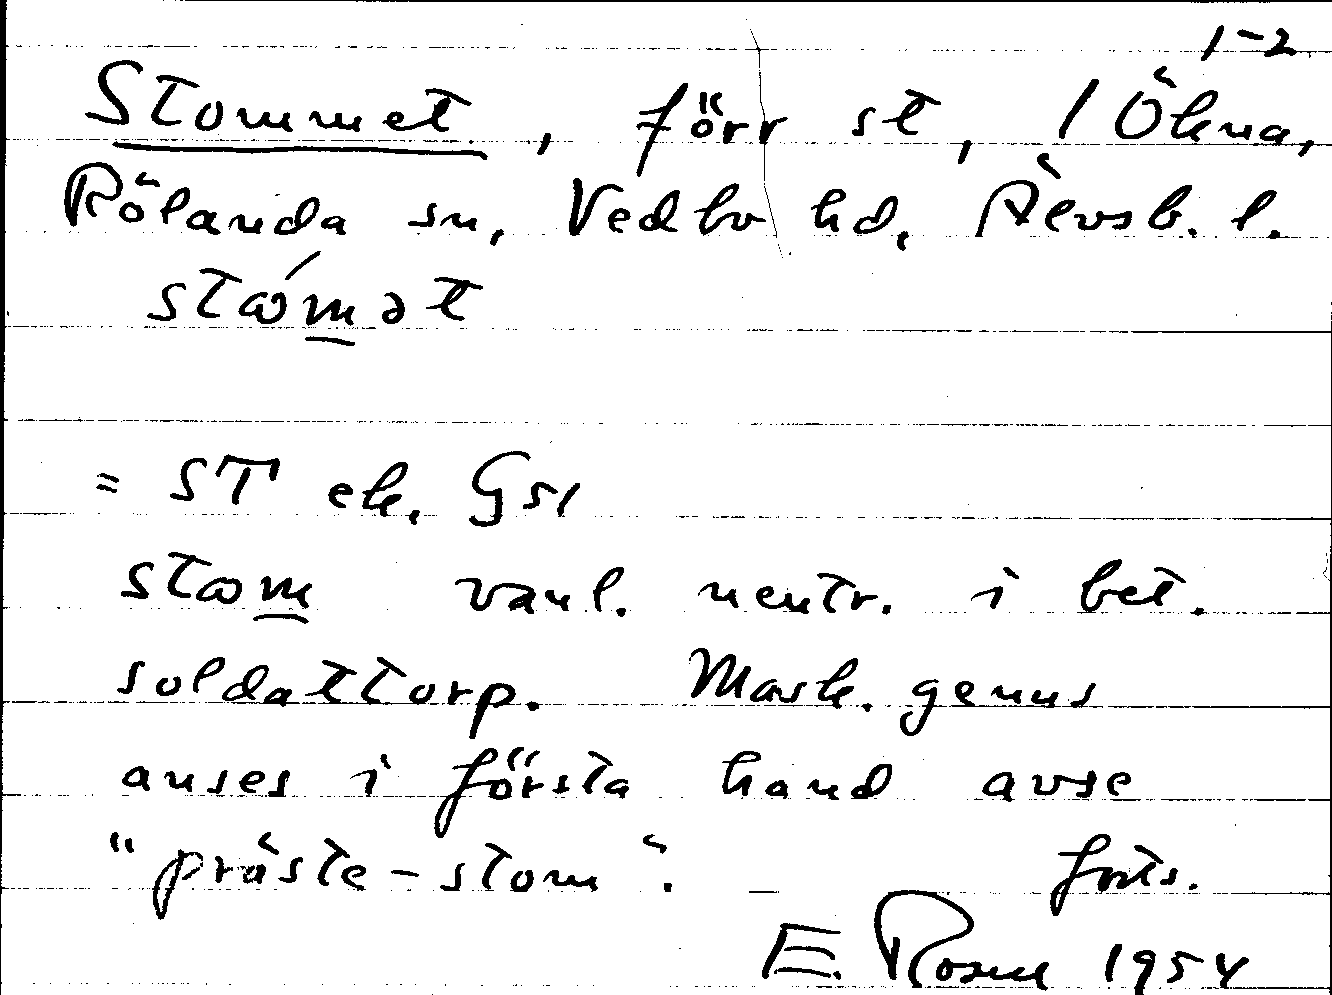 1-2
Stommet, förr st, 1 Ökna,
Rölanda sn, Vedbo hd, Älvsb. l.
stɷ́m̲ət
= ST ek. Gsl
stɷm̲ vanl. neutr. i bet.
soldattorp. Mask. genus
anses i första hand avse
"präste-stom". forts.
E. Rosell 1954